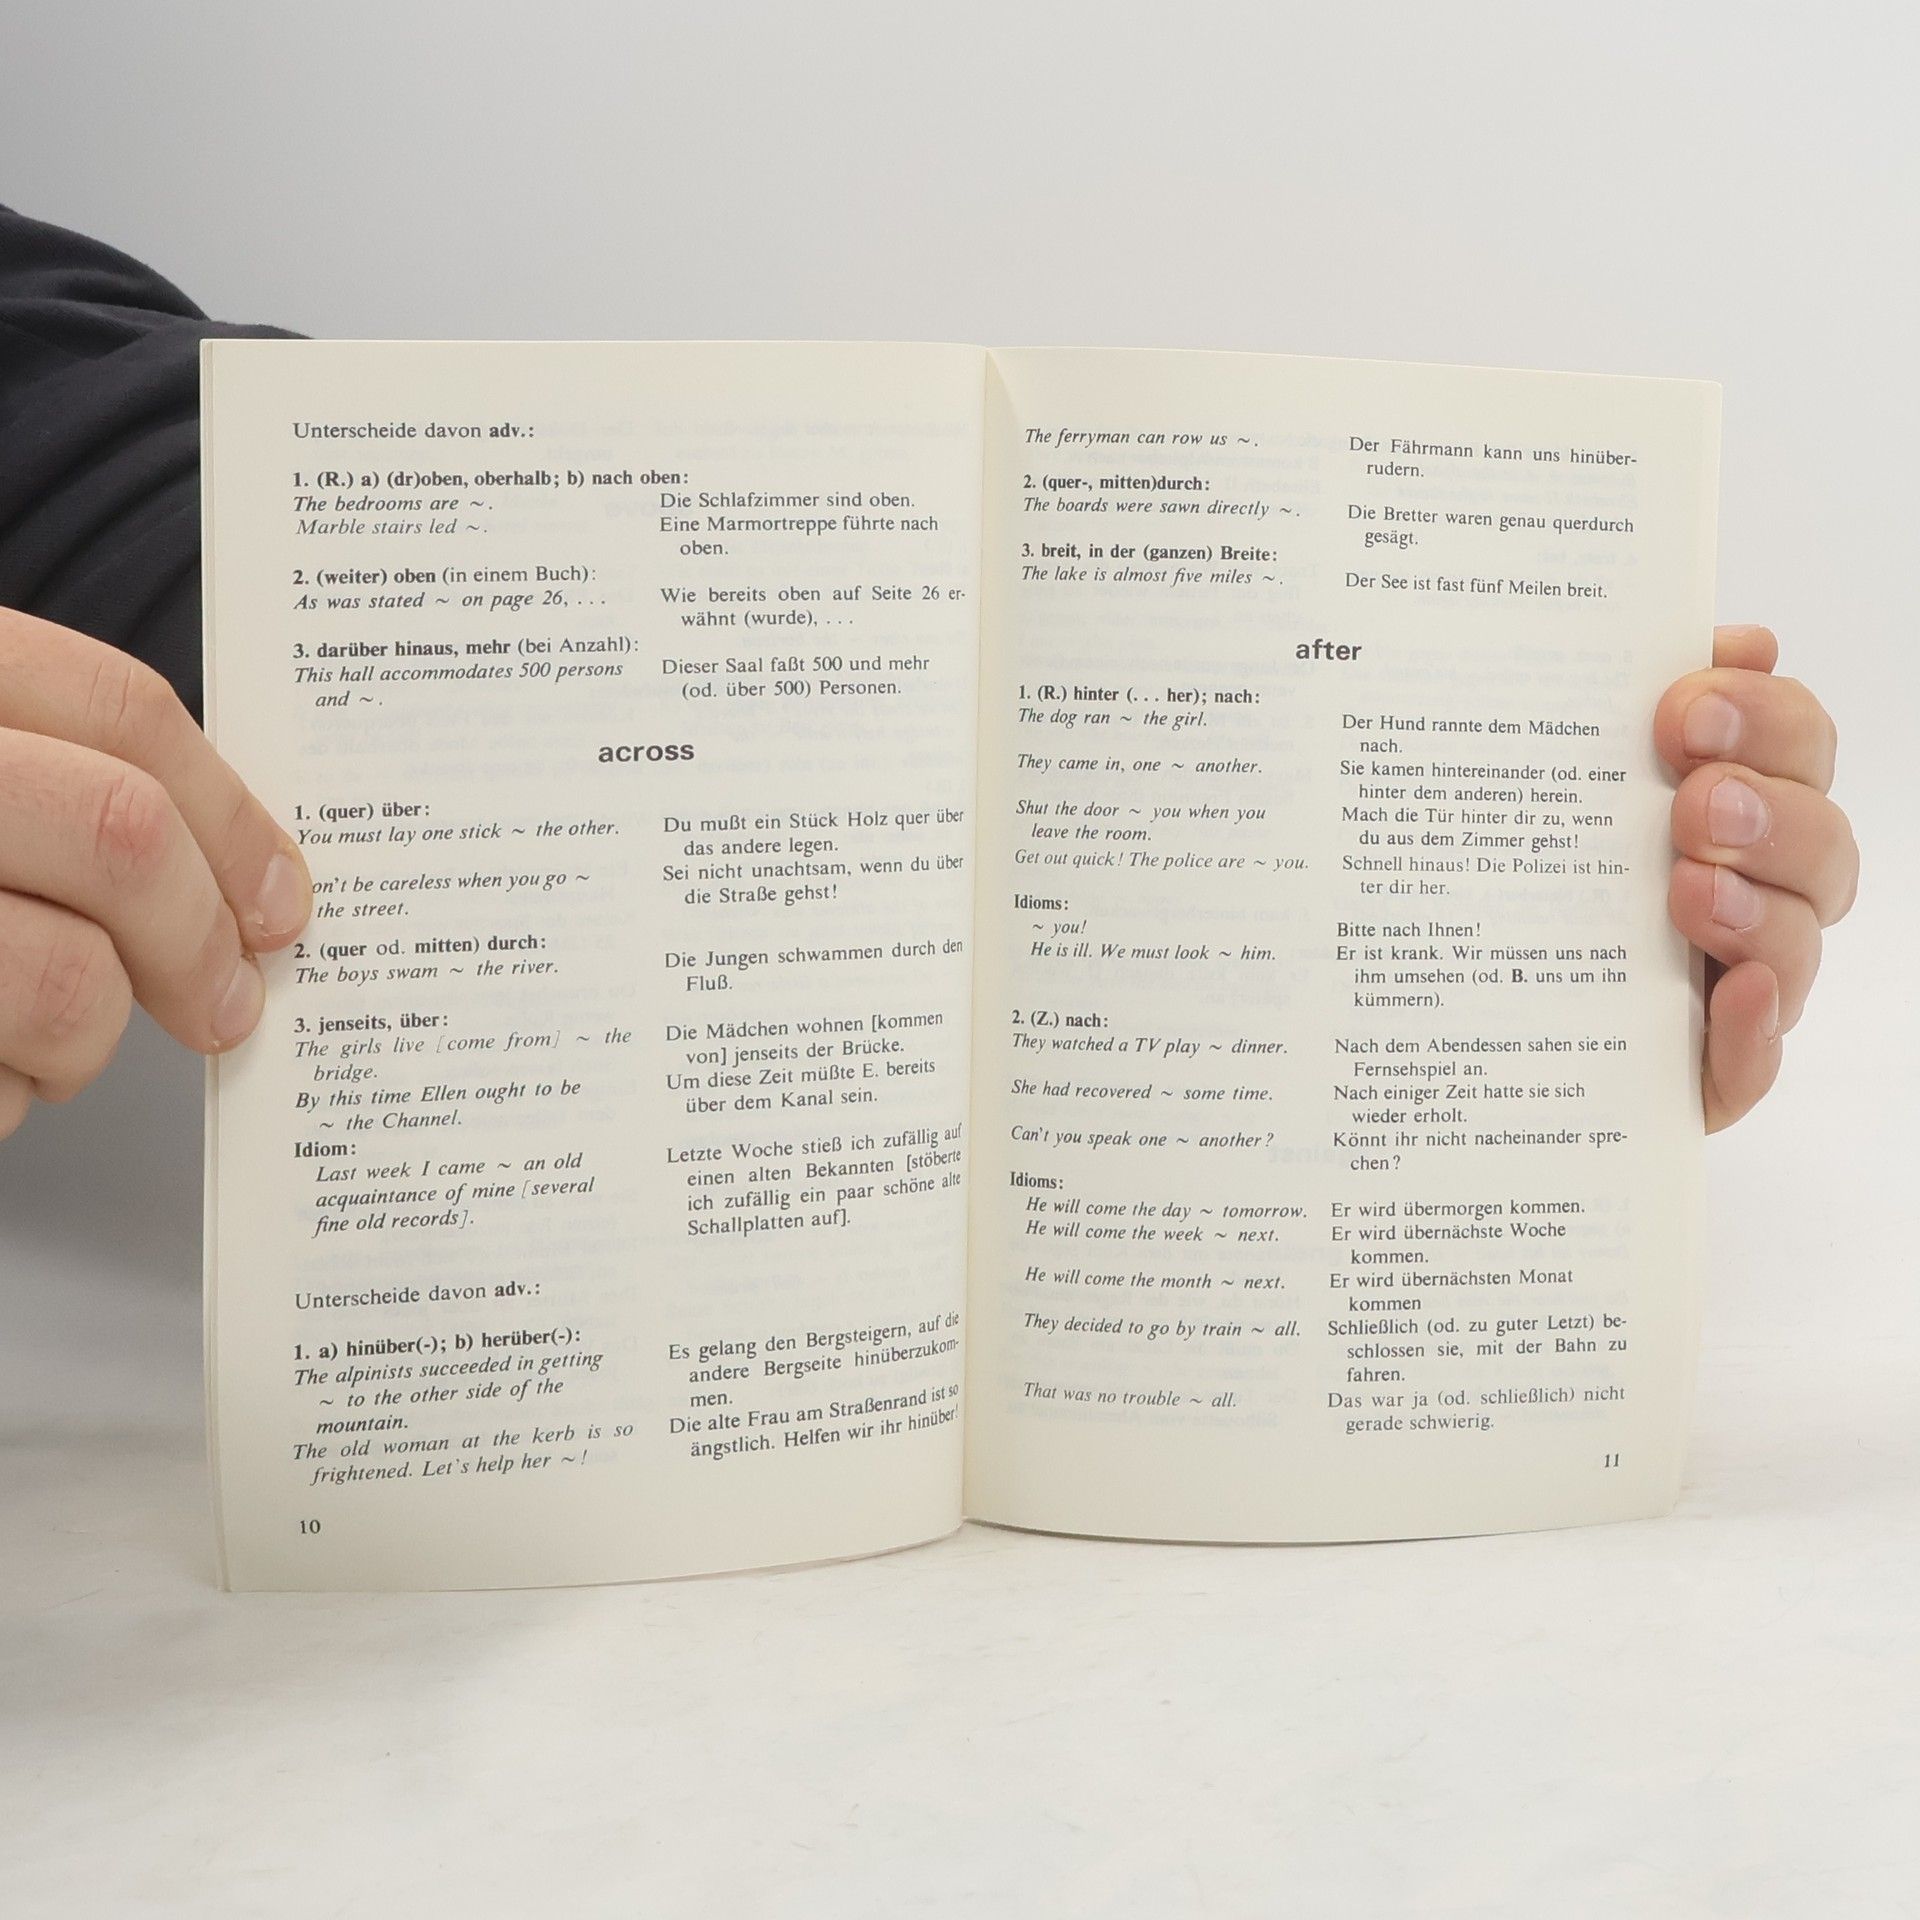 Unterscheide davon adv.:
1. (R.) a) (dr)oben, oberhalb; b) nach oben:
The bedrooms are ~.
Die Schlafzimmer sind oben.
Marble stairs led ~.
Eine Marmortreppe führte nach
oben.
2. (weiter) oben (in einem Buch):
As was stated ~ on page 26, ...
Wie bereits oben auf Seite 26 er-
wähnt (wurde), ...
3. darüber hinaus, mehr (bei Anzahl):
This hall accommodates 500 persons
and ~.
Dieser Saal faßt 500 und mehr
(od. über 500) Personen.
across
1. (quer) über:
You must lay one stick ~ the other.
Du mußt ein Stück Holz quer über
das andere legen.
on't be careless when you go ~
the street.
Sei nicht unachtsam, wenn du über
die Straße gehst!
2. (quer od. mitten) durch:
The boys swam ~ the river.
Die Jungen schwammen durch den
Fluß.
3. jenseits, über:
The girls live [come from] ~ the
bridge.
Die Mädchen wohnen [kommen
von] jenseits der Brücke.
By this time Ellen ought to be
~ the Channel.
Um diese Zeit müßte E. bereits
über dem Kanal sein.
Idiom:
Last week I came ~ an old
acquaintance of mine [several
fine old records].
Letzte Woche stieß ich zufällig auf
einen alten Bekannten [stöberte
ich zufällig ein paar schöne alte
Schallplatten auf].
Unterscheide davon adv.:
1. a) hinüber(-); b) herüber(-):
The alpinists succeeded in getting
~ to the other side of the
mountain.
Es gelang den Bergsteigern, auf die
andere Bergseite hinüberzukom-
men.
The old woman at the kerb is so
frightened. Let's help her ~!
Die alte Frau am Straßenrand ist so
ängstlich. Helfen wir ihr hinüber!
10
The ferryman can row us ~.
Der Fährmann kann uns hinüber-
rudern.
2. (quer-, mitten)durch:
The boards were sawn directly ~.
Die Bretter waren genau querdurch
gesägt.
3. breit, in der (ganzen) Breite:
The lake is almost five miles ~.
Der See ist fast fünf Meilen breit.
after
1. (R.) hinter (... her); nach:
The dog ran ~ the girl.
Der Hund rannte dem Mädchen
nach.
They came in, one ~ another.
Sie kamen hintereinander (od. einer
hinter dem anderen) herein.
Shut the door ~ you when you
leave the room.
Mach die Tür hinter dir zu, wenn
du aus dem Zimmer gehst!
Get out quick! The police are ~ you.
Schnell hinaus! Die Polizei ist hin-
ter dir her.
Idioms:
~ you!
Bitte nach Ihnen!
He is ill. We must look ~ him.
Er ist krank. Wir müssen uns nach
ihm umsehen (od. B. uns um ihn
kümmern).
2. (Z.) nach:
They watched a TV play ~ dinner.
Nach dem Abendessen sahen sie ein
Fernsehspiel an.
She had recovered ~ some time.
Nach einiger Zeit hatte sie sich
wieder erholt.
Can't you speak one ~ another?
Könnt ihr nicht nacheinander spre-
chen?
Idioms:
He will come the day ~ tomorrow.
Er wird übermorgen kommen.
He will come the week ~ next.
Er wird übernächste Woche
kommen.
He will come the month ~ next.
Er wird übernächsten Monat
kommen
They decided to go by train ~ all.
Schließlich (od. zu guter Letzt) be-
schlossen sie, mit der Bahn zu
fahren.
That was no trouble ~ all.
Das war ja (od. schließlich) nicht
gerade schwierig.
11